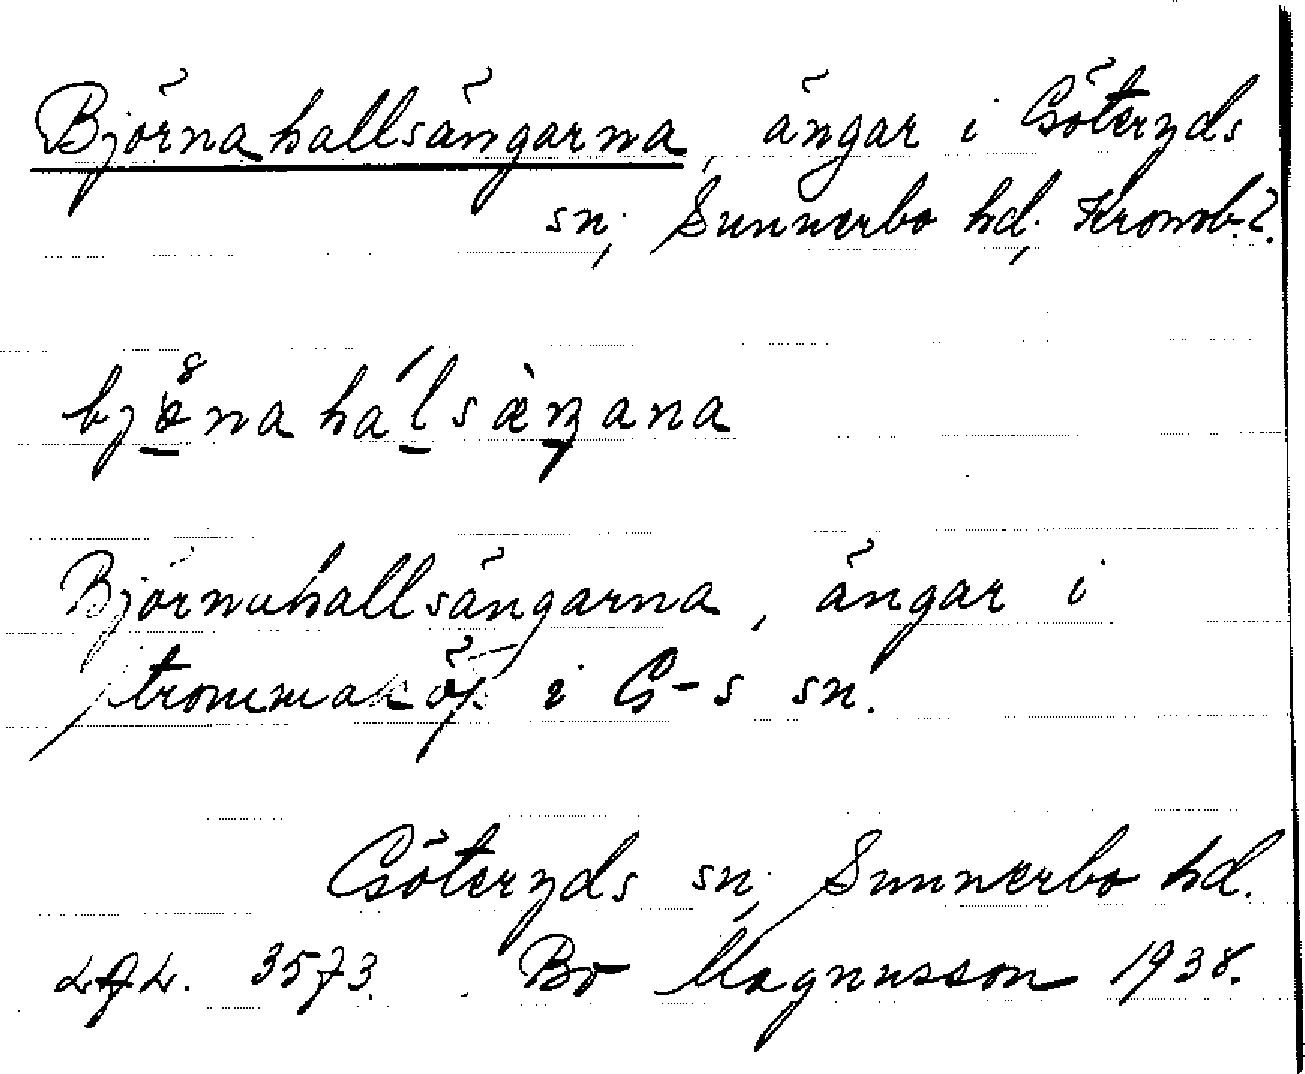 Björnahallsängarna, ängar i Göteryds
sn; Sunnerbo hd; Kronob. l.
Björnahallsängarna, ängar i
Strommaköp i G-s sn.
Göteryds sn; Sunnerbo hd.
3573. Bo Magnusson 1938.